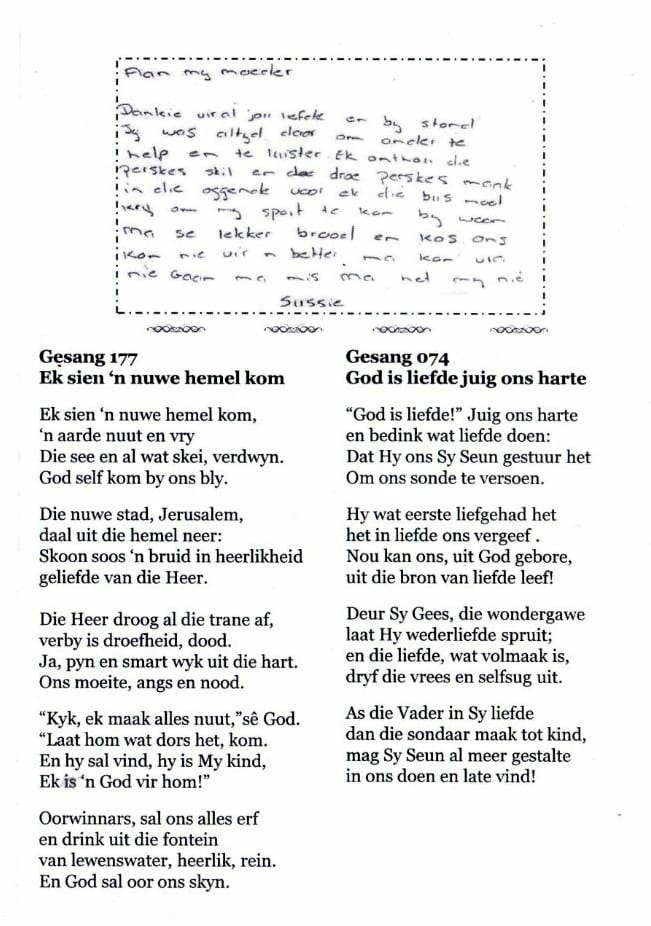 Aan my moeder
Dankie viral jou liefde en by stand
Jy was altyd daar om ander te
help en te luister Ek onthou die
Perskes skil en droe Perskes maak
in die oggende voor ek die bus moet
kry om my sport te kom by woon
Ma se lekker brood en kos ons
kon nie vir n better ma kon vra
nie Gaan ma mis ma het my nie
Sussie
Gesang 177
Ek sien ‘n nuwe hemel kom
Ek sien ‘n nuwe hemel kom,
‘n aarde nuut en vry
Die see en al wat skei, verdwyn.
God self kom by ons bly.
Die nuwe stad, Jerusalem,
daal uit die hemel neer:
Skoon soos ‘n bruid in heerlikheid
geliefde van die Heer.
Die Heer droog al die trane af,
verby is droefheid, dood.
Ja, pyn en smart wyk uit die hart.
Ons moeite, angs en nood.
“Kyk, ek maak alles nuut,”sê God.
“Laat hom wat dors het, kom.
En hy sal vind, hy is My kind,
Ek is ‘n God vir hom!”
Oorwinnars, sal ons alles erf
en drink uit die fontein
van lewenswater, heerlik, rein.
En God sal oor ons skyn.
Gesang 074
God is liefde juig ons harte
“God is liefde!” Juig ons harte
en bedink wat liefde doen:
Dat Hy ons Sy Seun gestuur het
Om ons sonde te versoen.
Hy wat eerste liefgehad het
het in liefde ons vergeef .
Nou kan ons, uit God gebore,
uit die bron van liefde leef!
Deur Sy Gees, die wondergawe
laat Hy wederliefde spruit;
en die liefde, wat volmaak is,
dryf die vrees en selfsug uit.
As die Vader in Sy liefde
dan die sondaar maak tot kind,
mag Sy Seun al meer gestalte
in ons doen en late vind!